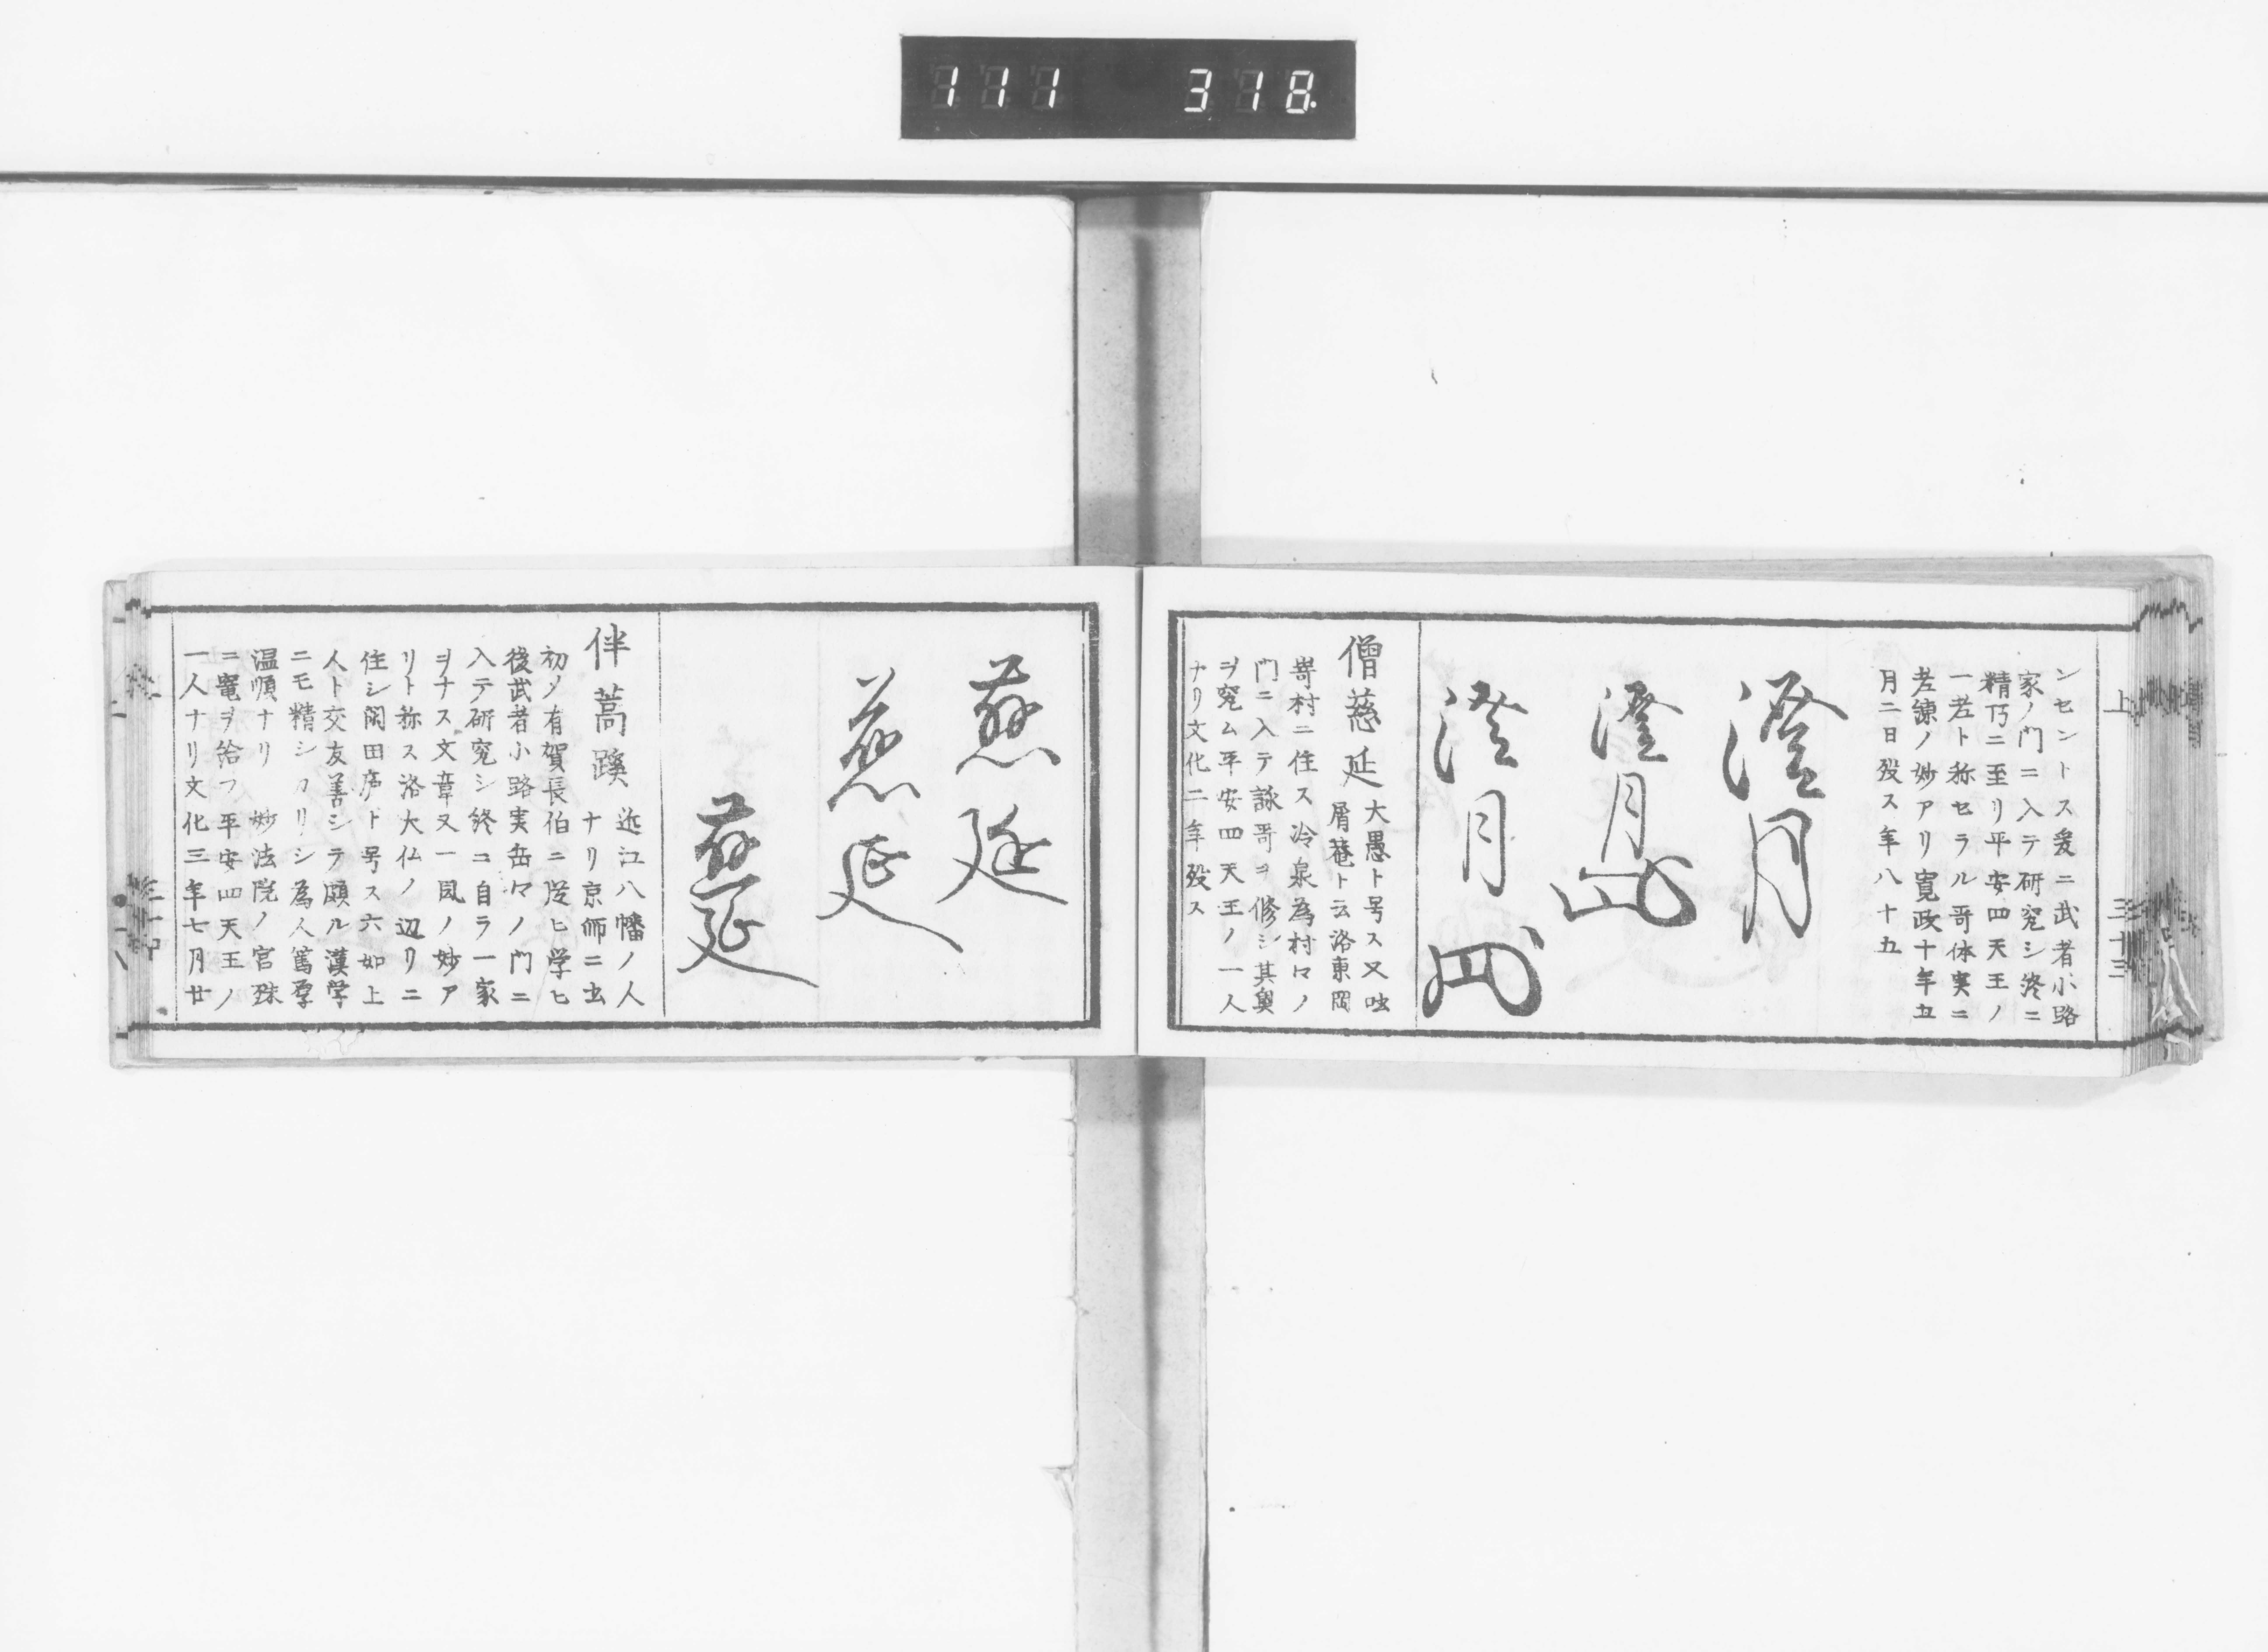 111 318.
上
三十三
ンセントス爰ニ武者小路
家ノ門ニ入テ研究シ終ニ
精巧ニ至リ平安四天王ノ
一老ト称セラル哥体実ニ
老錬ノ妙アリ寛政十年五
月二日歿ス年八十五
澄月
澄月
澄月
僧慈延
大愚ト号ス又吐
屑菴ト云洛東岡
嵜村ニ住ス冷泉為村ロノ
門ニ入テ詠哥ヲ修シ其奥
ヲ究ム平安四天王ノ一人
ナリ文化二年歿ス
慈延
慈延
慈延
伴蒿蹊
近江八幡ノ人
ナリ京師ニ出
初メ有賀長伯ニ従ヒ学ヒ
後武者小路実岳ロノ門ニ
入テ研究シ終ニ自ラ一家
ヲナス文章又一風ノ妙ア
リト称ス洛大仏ノ辺リニ
住シ閑田庐ト号ス六如上
人ト交友善シテ頗ル漢学
ニモ精シカリシ為人篤厚
温順ナリ 妙法院ノ宮殊
ニ寵ヲ給フ平安四天王ノ
一人ナリ文化三年七月廿